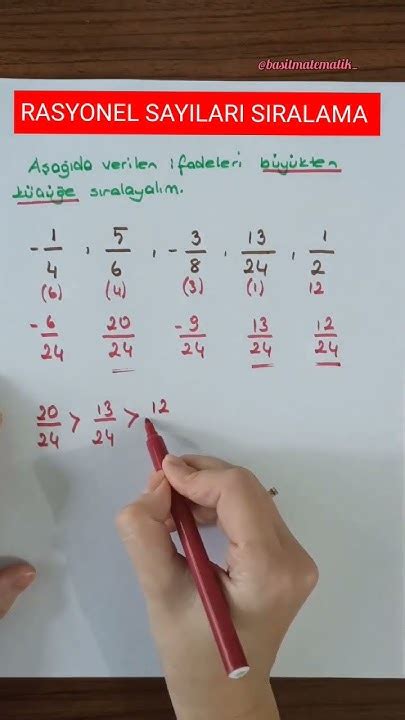 @basitmatematik_
RASYONEL SAYILARI SIRALAMA
Aşağıda verilen ifadeleri büyükten
küçüğe sıralayalım.
-1/4 , 5/6 , -3/8 , 13/24 , 1/2
(6) (4) (3) (1) 12
-6/24 20/24 -9/24 13/24 12/24
20/24 > 13/24 > 12